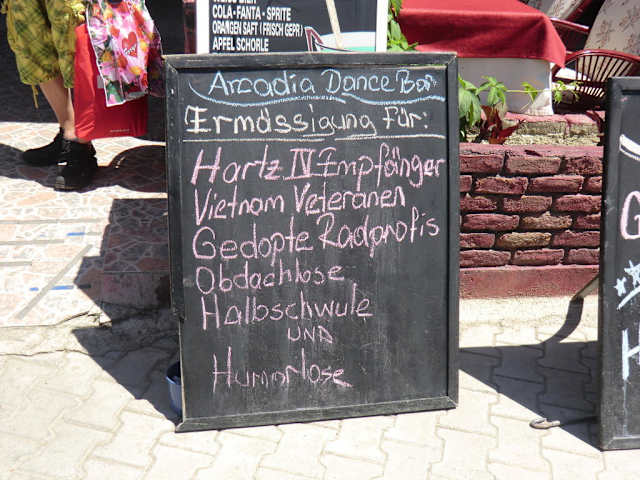 COLA-FANTA-SPRITE
ORANGEN SAFT (FRISCH GEPR.)
APFEL SCHORLE
Arcadia Dance Bar
Ermässigung für:
Hartz IV Empfänger
Vietnam Veteranen
Gedopte Radprofis
Obdachlose
Halbschwule
UND
Humorlose